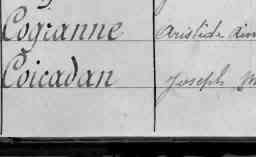 Cogranne Aristide Aim
Coicadan Joseph M